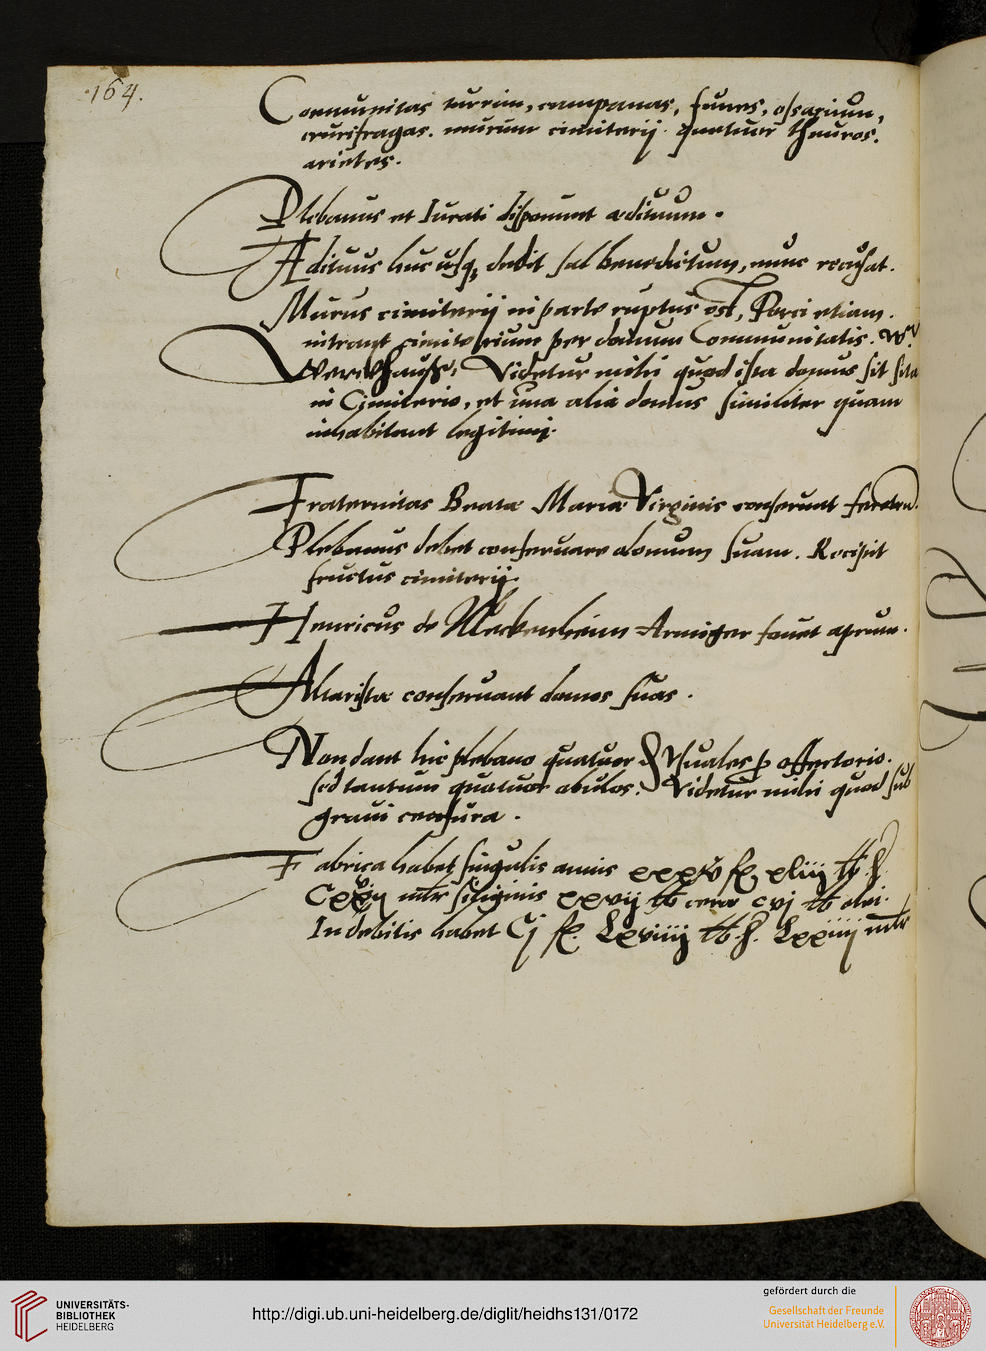 164.
Communitas turrim, campanas, funes, ossarium,
crucifragas. murum cimiterij. quatuor thauros.
arietes.
Plebanus et Iurati disponunt ædituum.
Ædituus huc usq; dedit sal benedictum, nunc recusat.
Murus cimiterij in parte ruptus est, Porci etiam
intrant cimiterium per domum Communitatis.
Videtur mihi quod ista domus sit sita
in Cimiterio, et una alia domus similiter quam
inhabitant legitimi.
Fraternitas Beatæ Mariæ Virginis conserunt
Plebanus debet conseruare domum suam. Recipit
fructus cimiterij.
Henricus de Meckenheim Armiger fouet aprum.
Altaristæ conseruant domos suas.
Non dant hic plebano quatuor usuales p offertorio.
sed tantum quatuor obulos. Videtur mihi quod sub
graui censura.
Fabrica habet singulis annis xxxv xliij
mlr siliginis xxvij lb ceræ cvj lb olei.
In debitis habet Cj Lxviiij Lxxiiij mlr
UNIVERSITÄTS-
BIBLIOTHEK
HEIDELBERG
http://digi.ub.uni-heidelberg.de/diglit/heidhs131/0172
gefördert durch die
Gesellschaft der Freunde
Universität Heidelberg e.V.